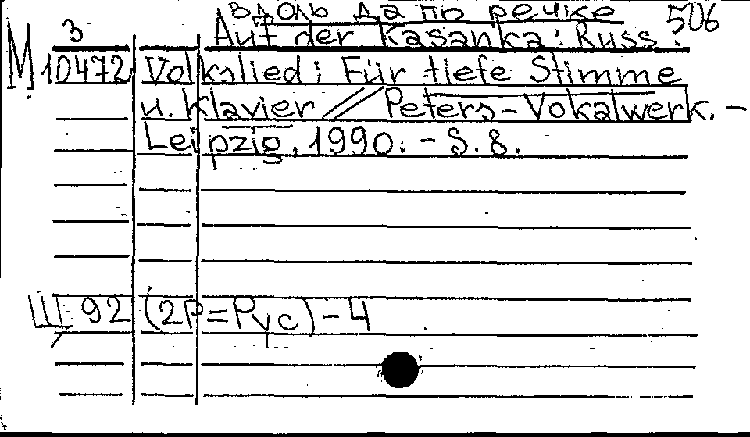 вдоль да по речке 506
З Auf der Kasanka: Russ.
М 10472 Volkslied; Für tiefe Stimme
u. Klavier // Peters-Vokalwerk. -
Leipzig, 1990. - S. 8.
Ш 92 (2Р=Рус) - 4